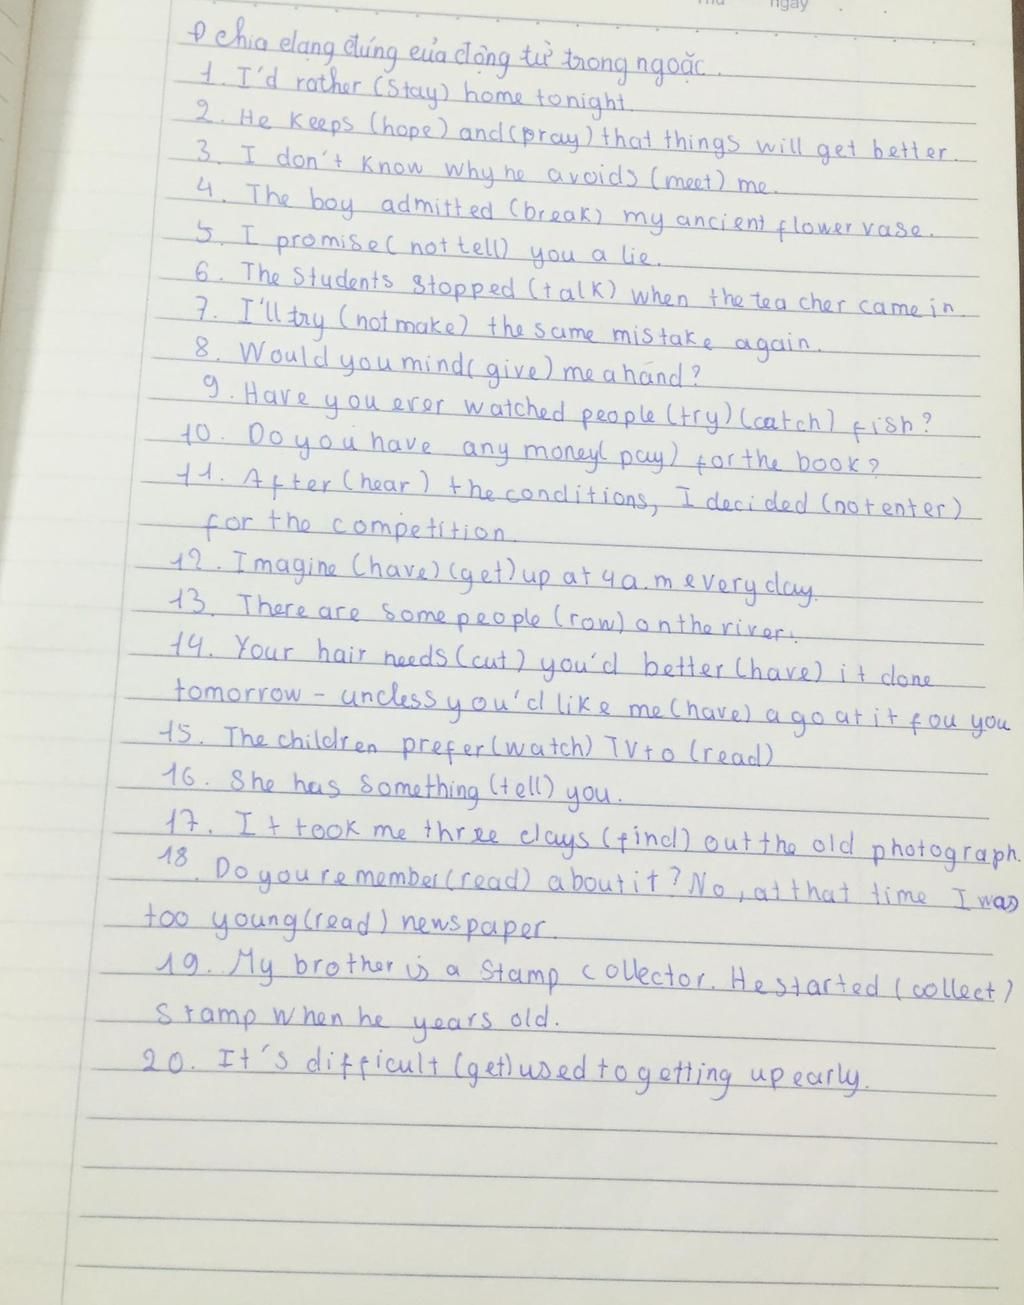 Thứ ngày
Chia dạng đúng của động từ trong ngoặc.
1. I'd rather (stay) home tonight.
2. He keeps (hope) and (pray) that things will get better.
3. I don't know why he avoids (meet) me.
4. The boy admitted (break) my ancient flower vase.
5. I promise (not tell) you a lie.
6. The students stopped (talk) when the teacher came in.
7. I'll try (not make) the same mistake again.
8. Would you mind (give) me a hand?
9. Have you ever watched people (try) (catch) fish?
10. Do you have any money (pay) for the book?
11. After (hear) the conditions, I decided (not enter)
for the competition.
12. Imagine (have) (get) up at 4 a.m every day.
13. There are some people (row) on the river.
14. Your hair needs (cut) you'd better (have) it done
tomorrow - uncless you'd like me (have) a go at it fou you
15. The children prefer (watch) TV to (read)
16. She has something (tell) you.
17. It took me three days (find) out the old photograph.
18. Do you remember (read) about it? No, at that time I was
too young (read) newspaper.
19. My brother is a stamp collector. He started (collect)
stamp when he years old.
20. It's difficult (get) used to getting up early.